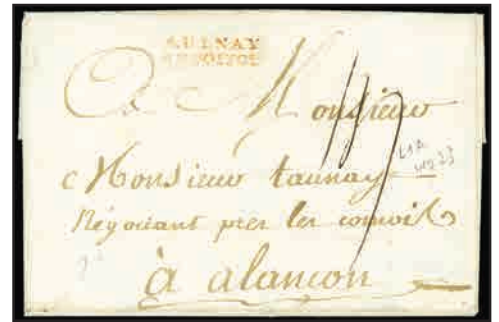 AULNAY
EN POITOU
A Monsieur
Monsieur taunay
Négociant prer les
à alançon